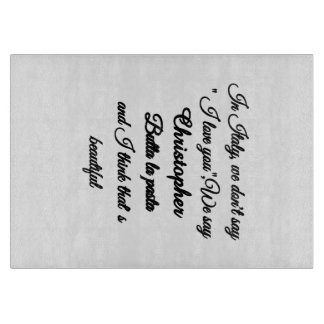 In Italy, we don't say
" I love you",We say
Christopher
Butta la pasta
and I think that s
beautiful